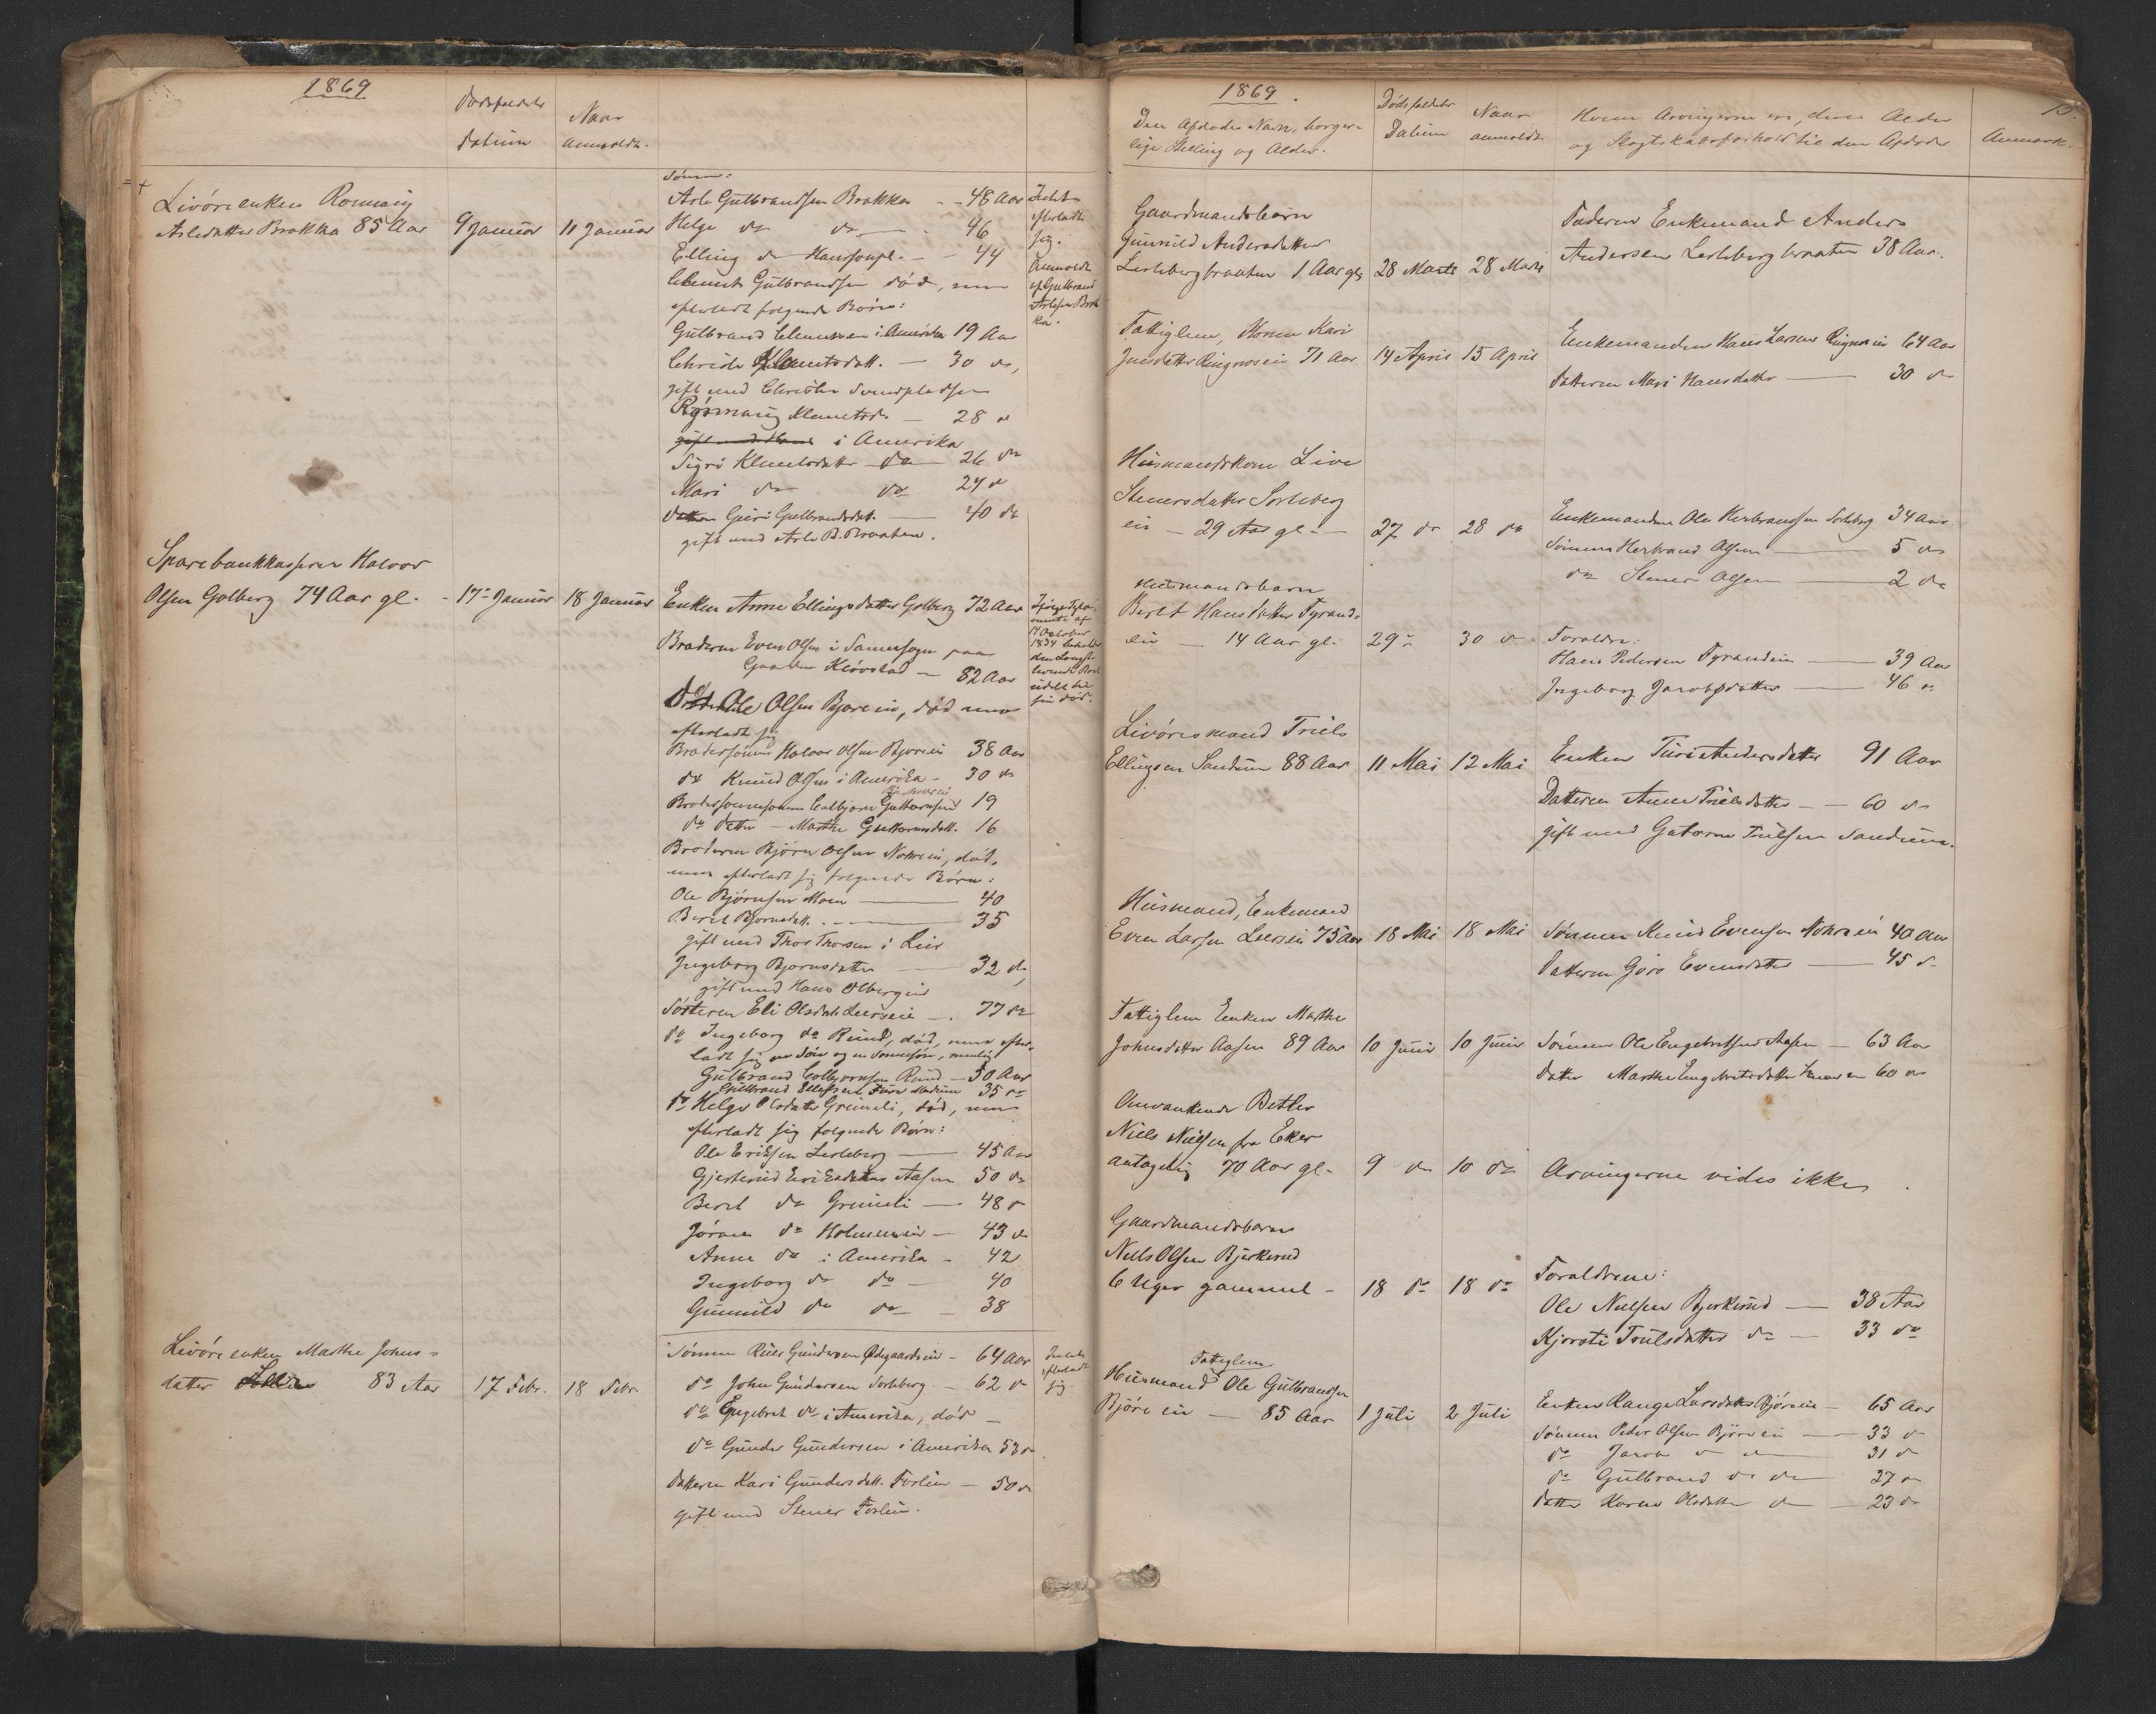 1869
Dødsfaldets
Datum
Naar
anmeldt.
Livørenken Rønnaug
Arlesdatter Brakka 85 Aar
9 Januar
11 Januar
Sønner:
Arle Gulbrandsen Brakka - - 48 Aar
Helge do do - 46
Elling do - 44
Clemet Gulbrandsen død, men
efterladt følgende Børn:
Gulbrand Clemetsen i Amerika 19 Aar
Clemetsdatt. - 30 do,
gift med Svendpladsen
Rønnaug Klemetsd. - 28 do
i Amerika
Sigri Klemetsdatter do 26 do
Mari do do 24 do
Datter Guri Gulbrandsdat. - 40 do
gift med Arle B. Braaten.
Intet
efterladt
sig.
Anmeldt
af Gulbrand
Arlesen Brak
ka.
Sparebankkasserer Halvor
Olsen Golberg 74 Aar gl. -
17de Januar
18 Januar
Enken Anne Ellingsdatter Golberg 72 Aar
Broderen Even Olsen i Samesogn paa
Gaarden Kløvstad - 82 Aar
do Ole Olsen Bjøreie, død men
efterladt sig
Brodersønnen Halvor Olsen Bjøreie 38 Aar
do Knud Olsen i Amerika - 30 do
Brodersønnensønnen Colbjørn Guttormsen 19
do datter - Marthe Guttormsdatt. 16
Broderen Bjørn Olsen død,
men efterladt sig følgende Børn:
Ole Bjørnsen Moen - 40
Beret Bjørnsdatt. - 35
gift med Thor Thorsen i Lier
Ingeborg Bjørnsdatter - 32 do,
gift med Hans
Søsteren Eli Olsdatt. - 77 do
do Ingeborg do Ruud, død, men efter-
ladt sig en Søn og en Sønnesøn, nemlig
Gulbrand Colbjørnsen Ruud - 50 Aar
Gulbrand 35 do
do Helge Olsdatter Grimeli, død, men
efterladt sig følgende Børn:
Ole Eriksen Lesleberg - 45 Aar
Gjertrud Eriksdatter Aasen 50 do
Beret do Grimeli - 48 do
Jøran do - 43 do
Anne do i Amerika - 42
Ingeborg do do - 40
Gunnild do do - 38
af
14 October
1834
sin død.
Livørenken Marthe Johns-
datter 83 Aar
17 Febr.
18 Febr.
Sønnen Gundersen Ødegaardseie - 64 Aar
do John Gundersen Sorteberg - 62 do
do Engebret do i Amerika, død -
do Gunder Gundersen i Amerika 53 do
Datteren Kari Gundersdatt. Forlien - 50 do
gift med Stener Forlien.
Intet
efterladt
sig.
1869.
Den Afdødes Navn, borger-
lige Stilling og Alder.
Dødsfaldets
Datum
Naar
anmeldt
Hvem Arvingerne ere, deres Alder
og Slægtskabsforhold til den Afdøde
Anmærk.
Gaardmandsbarn
Gunnild Andersdatter
Lesleberg braaten 1 Aar gl.
28 Marts
28 Marts
Faderen Enkemand Anders
Andersen Lesleberg braaten 38 Aar.
Fattiglem, Konen Kari
Jensdatter Ringnes eie 71 Aar
14 April
15 April
Enkemanden Hans Larsen Ringnes eie 64 Aar
Datteren Mari Hansdatter - 30 do
Husmandskone Live
Stenersdatter Sorteberg
eie - 29 Aar gl. -
27 do
28 do
Enkemanden Ole Herbrandsen Sorteberg 34 Aar
Sønnen Herbrand Olsen - 5 do
do Stener Olsen - 2 do
Husmandsbarn
Beret Hansdatter Tyrands
eie - 14 Aar gl.
29 -
30 do
Forældre:
Hans Pedersen Tyrandseie - 39 Aar
Ingeborg Jacobsdatter - 46 do
Livøresmand Truls
Ellingsen Sandum 88 Aar
11 Mai
12 Mai
Enken Turi Andersdatter 91 Aar
Datteren Anne Trulsdatter - - 60 do
gift med Gutorm Trulsen Sandum.
Husmand, Enkemand
Even Larsen 75 Aar
18 Mai
18 Mai
Sønnen Knud Evensen 40 Aar
Datteren Evensdatter - 45 do
Fattiglem Enken Marthe
Johnsdatter Aasen 89 Aar
10 Juni
10 Juni
Sønnen Ole Engebretsen Aasen - 63 Aar
Datter Marthe Engebretsdatter 60 do
Omvankende Betler
Niels Nielsen fra Eker
antagelig 70 Aar gl. -
9 do
10 do
Arvingerne vides ikke.
Gaardmandsbarn
Niels Olsen Bjerkerud
6 Uger gammel -
18 do
18 do
Forældrene:
Ole Nielsen Bjerkerud - 38 Aar
Kjersti Trulsdatter do - 33 do
Fattiglem
Husmand Ole Gulbrandsen
Bjøre eie - 85 Aar
1 Juli
2 Juli
Enken Range Larsdatter Bjøreeie - 65 Aar
Sønnen Peder Olsen Bjøreeie - 33 do
do Jacob do do - 31 do
do Gulbrand do do - 27 do
Datter Karen Olsdatter do - 23 do